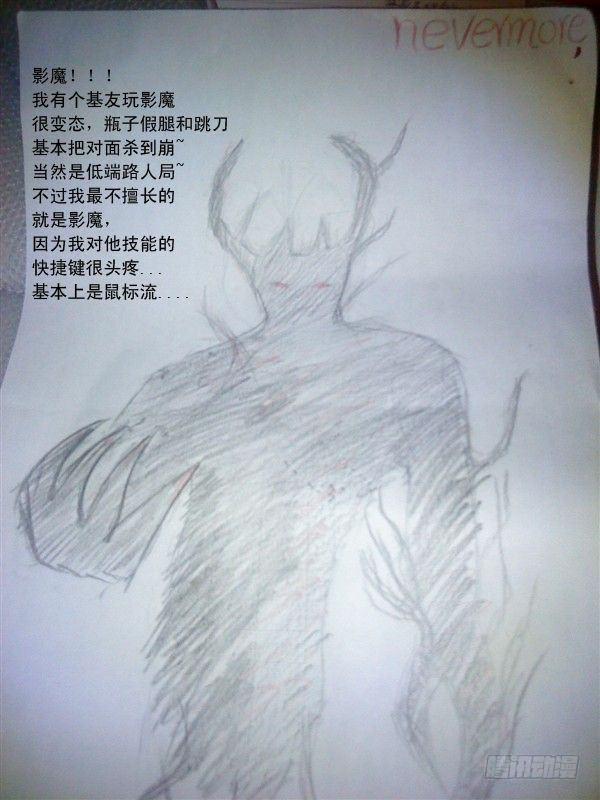 nevermore,
影魔！！！
我有个基友玩影魔
很变态，瓶子假腿和跳刀
基本把对面杀到崩~
当然是低端路人局~
不过我最不擅长的
就是影魔，
因为我对他技能的
快捷键很头疼...
基本上是鼠标流....
腾讯动漫